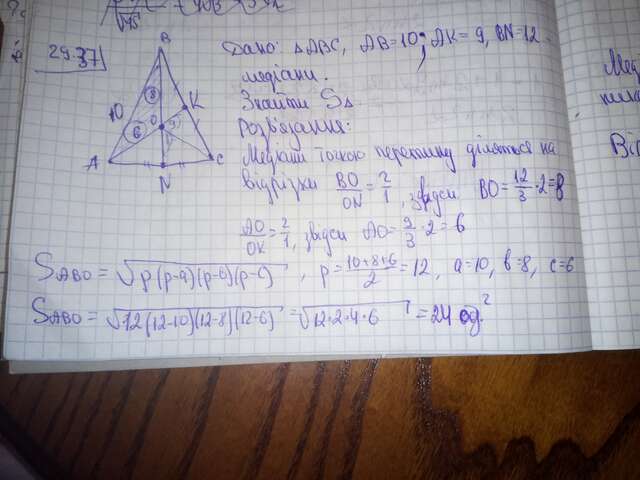 √45
29.37
Дано: △ABC, AB=10; AK=9, BN=12
медіани.
Знайти S△
Розв'язання:
Медіани точкою перетину діляться на
відрізки BO/ON = 2/1, звідси BO = 12/3 · 2 = 8
AO/OK = 2/1, звідси AO = 9/3 · 2 = 6
S_ABO = √p(p-a)(p-b)(p-c), p = (10+8+6)/2 = 12, a=10, b=8, c=6
S_ABO = √12(12-10)(12-8)(12-6) = √12·2·4·6 = 24 од²
B
10
8
K
O
9
6
A
C
N
Мед
Від